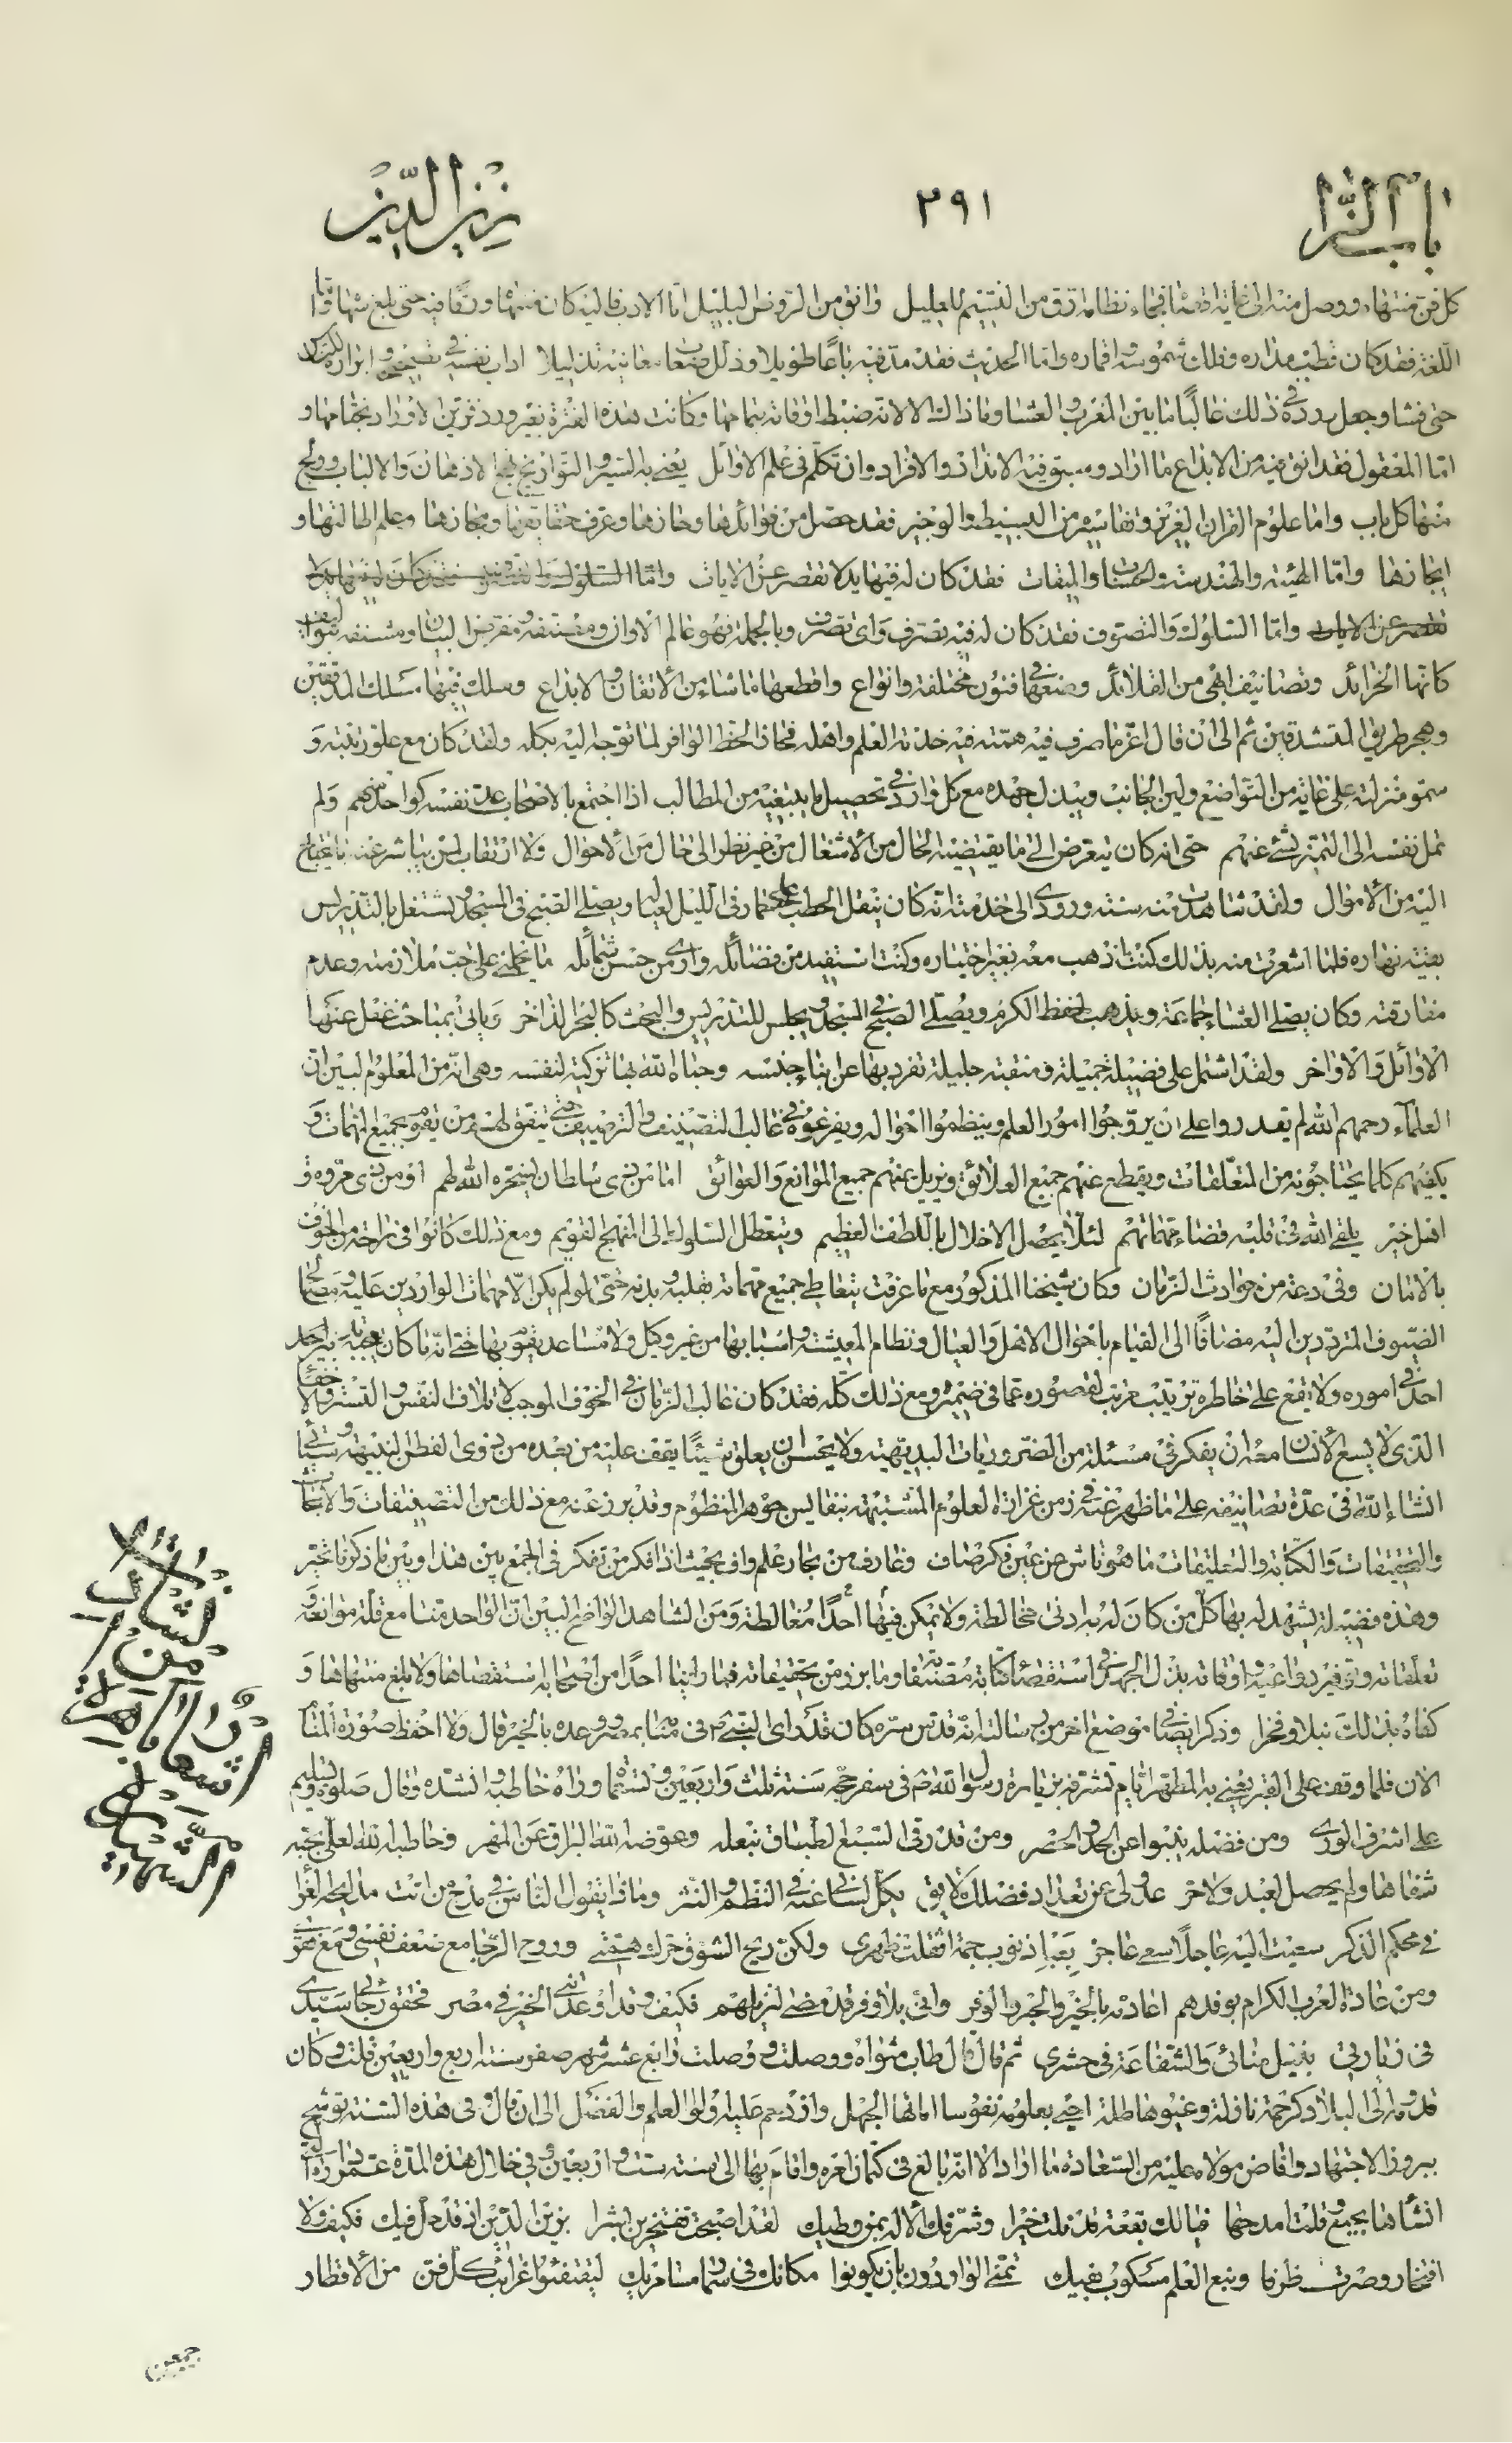 باب الزاء
٢٩١
زين الدين
كل فن منتهاه ووصل منه الى غاية اقصاها فجاء نظامه ارق من النسيم للعليل وانق من الروض البليل اما الادب فاليه كان منتهاه ورقا فيه حتى بلغ سهاه واما
اللغة فقد كان قطب مداره وفلك شموسه واقماره واما الحديث فقد مد فيه باعا طويلا وذلل صعاب معانيه تذليلا اداب نفسه في تصحيحه وابرازه للناس
حتى فشا وجعل ورده في ذلك غالبا ما بين المغرب والعشا وما ذاك الا لانه ضبط اوقاته بتمامها وكانت هذه الفترة بغير ورد فزين الاوراد بختامها و
اما المعقول فقد اتى فيه من الابداع ما اراد وسبق فيه الانداد والافراد وان تكلم في علم الاوائل يعني به السير والتواريخ بهج الاذهان والالباب وولج
منها كل باب واما علوم القران العزيز وتفاسيره من البسيط والوجيز فقد حصل من فوائدها وحازها وعرف حقايقها ومجازها وعلم اطالتها و
ايجازها واما الهيئة والهندسة والحساب والميقات فقد كان له فيها يد لا تقصر عن الايات واما
واما السلوك والتصوف فقد كان له فيه تصرف واي تصرف وبالجملة فهو عالم الاوان ومصنفه ومقرض البيان ومشنفه بتواليف
كانها الخرائد وتصانيف ابهى من القلائد وضعها في فنون مختلفة وانواع واقطعها ما شاء من الاتقان والابداع وسلك فيها مسلك المدققين
وهجر طريق المتشدقين ثم الى ان قال اعز ما صرف فيه همته فيه خدمة العلم واهله فحاز الحظ الوافر لما توجه اليه بكله ولقد كان مع علو رتبته و
سمو منزلته على غاية من التواضع ولين الجانب ويبذل جهده مع كل وارد في تحصيل ما يبتغيه من المطالب اذا اجتمع بالاصحاب عد نفسه كواحد منهم ولم
تمل نفسه الى التميز بشيء عنهم حتى انه كان يتعرض الى ما يقتضيه الحال من الاشغال من غير نظر الى حال من الاحوال ولا ارتقاب لمن يباشر عنه ما يحتاج
اليه من الاموال ولقد شاهدت منه سنة ورودي الى خدمته انه كان ينقل الحطب على حمار في الليل لعياله ويصلي الصبح في المسجد ويشتغل بالتدريس
بقية نهاره فلما اشعرت منه بذلك كنت اذهب معه بغير اختياره وكنت استفيد من فضائله وارى من حسن شمائله ما يحملني على حب ملازمته وعدم
مفارقته وكان يصلي العشاء جماعة ويذهب لحفظ الكرم ويصلي الصبح في المسجد ويجلس للتدريس والبحث كالبحر الذاخر ويأتي بمباحث غفل عنها
الاوائل والاواخر ولقد اشتمل على فضيلة جميلة ومنقبة جليلة تفرد بها عن ابناء جنسه وحباه الله بها تزكية لنفسه وهي انه من المعلوم البين ان
العلماء رحمهم الله لم يقدروا على ان يروجوا امور العلم وينظموا احواله ويفرغوه في غالب التصنيف والترصيف حتى يتفق لهم من يقوم بجميع المهمات و
يكفيهم كلما يحتاجونه من المتعلقات ويقطع عنهم جميع العلائق ويزيل عنهم جميع الموانع والعوائق اما من ذي سلطان يسخره الله لهم او من ذي مروة و
اهل خير يلقي الله في قلبه قضاء مهماتهم لئلا يحصل الاخلال باللطف العظيم ويتعطل السلوك الى المنهج القويم ومع ذلك كانوا في راحة من الخوف
بالامان وفي دعة من حوادث الزمان وكان شيخنا المذكور مع ما عرفت يتعاطى جميع مهماته بقلبه وبدنه حتى لو لم يكن الا مهمات الواردين عليه ومصالح
الضيوف المترددين اليه مضافا الى القيام باحوال الاهل والعيال ونظام المعيشة واسبابها من غير وكيل ولا مساعد يقوم بها حتى انه ما كان يعجبه تدبير احد
احد في اموره ولا يقع على خاطره ترتيب مرتب لقصوره عما في ضميره ومع ذلك كله فقد كان غالب الزمان في الخوف الموجب لاتلاف النفس والتستر والاخفاء
الذي لا يسع الانسان معه ان يفكر في مسئلة من الضروريات البديهية ولا يحسن ان يعلق شيئا يقف عليه من بعده من ذوي الفطن النبيهة وسيأتي
انشاء الله في عدة تصانيفه على ما ظهر عنه في زمن غزارة العلوم المشتبهة بنفايس جوهر المنظوم وقد برز عنه مع ذلك من التصنيفات والابحاث
والتحقيقات والكتابة والتعليقات ما هو ناش عن عين فكر صاف وغارف من بحار علم واف بحيث اذا فكر من تفكر في الجمع بين هذا وبين ما ذكرنا تحير
وهذه فضيلة يشهد له بها كل من كان له به ادنى مخالطة ولا يمكن فيها احدا مغالطة ومن الشاهد الواضح البين ان الواحد منا مع قلة موانعه و
تعلقاته وتوفير دواعيه واوقاته بذل الجهد في استقصاء كتابة مصنفاته وما برز من تحقيقاته فما راينا احدا من اصحابه استقصاها ولا بلغ منتهاها و
كفاه بذلك نبلا وفخرا وذكر ايضا في موضع اخر من رسالته انه قدس سره كان قد راى النبي ص في منامه بمصر ووعده بالخير قال ولا احفظ صورة المنام
الان فلما وقف على القبر يعني به المطهر ايام تشرفه بزيارة رسول الله ص في سفر حجه سنة ثلث واربعين وتسعمائة وراه خاطبه وانشده وقال صلوة وتسليم
على اشرف الورى ومن فضله ينبو عن الحد والحصر ومن قد رقى السبع الطباق بنعله وعوضه الله البراق عن المهر وخاطبه الله العلي بحبه
شفاها ولم يحصل لعبد ولا حر عدولي عن تعداد فضلك لائق يكل لساني عنه في النظم والنثر وماذا يقول الناس في مدح من اتت مدائحه الغرا
في محكم الذكر سعيت اليه عاجلا سعي عاجز بعبا ذنوب جمة اثقلت ظهري ولكن ريح الشوق حرك همتي وروح الرجا مع ضعف نفسي ومع فقري
ومن عادة العرب الكرام بوفدهم اعادته بالخير والحبر والوفر واني بلا وفر قد وضع لنزيلهم فكيف وقد اوعدتني الخير في مصر فحقق رجائي سيدي
في زيارتي بنيل منائي والشفاعة في حشري ثم قال قال طاب مثواه ووصلت رابع عشر شهر صفر سنة اربع واربعين قلت وكان
قدومه الى البلاد كرحمة نازلة وغيوث هاطلة احيى بعلومه نفوسا اماتها الجهل وازدحم عليه اولو العلم والفضل الى ان قال وفي هذه السنة توشح
ببرود الاجتهاد وافاض مولاه عليه من السعادة ما اراد الا انه بالغ في كتمان امره واقام بها الى سنة ست واربعين وفي خلال هذه المدة عمر داره التي
انشأها بجبع وقلت امدحها فيا لك بقعة قد نلت خيرا وشرفك الاله بمن وطيك لقد اصبحت تفتخرين بشرا بزين الدين اذ قد حل فيك فكيف ولا
افتخار وصرت ظرفا ومنبع العلم مسكوب بفيك تمنى الواردون بان يكونوا مكانك في مسامرتك ليقتفئوا غرائب كل فن من الاقطار
انشاد
من
اشعار
الشهيد